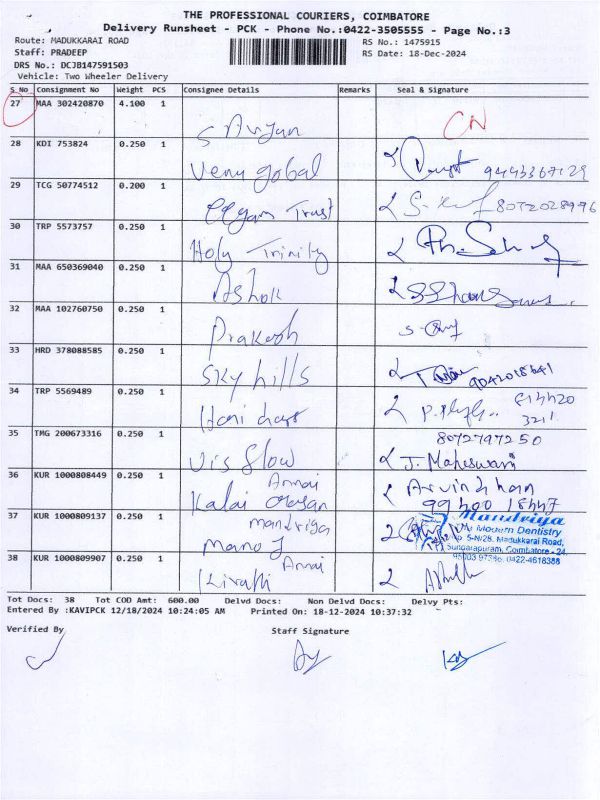 THE PROFESSIONAL COURIERS, COIMBATORE
Delivery Runsheet - PCK - Phone No.:0422-3505555 - Page No.:3
Route: MADUKKARAI ROAD
RS No.: 1475915
Staff: PRADEEP
RS Date: 18-Dec-2024
DRS No.: DCJB147591503
Vehicle: Two Wheeler Delivery
S No Consignment No Weight PCS Consignee Details Remarks Seal & Signature
27 MAA 302420870 4.100 1
S Arjun CN
28 KDI 753824 0.250 1
Venu gobal 9443367129
29 TCG 50774512 0.200 1
Trust 8072028996
30 TRP 5573757 0.250 1
Holy Trinity
31 MAA 650369040 0.250 1
Ashok
32 MAA 102760750 0.250 1
Prakash
33 HRD 378088585 0.250 1
Sky hills
34 TRP 5569489 0.250 1
35 TMG 200673316 0.250 1
8072797250
Vis flow J. Maheswari
36 KUR 1000808449 0.250 1
Annai
Kalai
37 KUR 1000809137 0.250 1
mandriya
Mano J
Mandriya
Modern Dentistry
No. 5-N/28, Madukkarai Road,
Sundarapuram, Coimbatore - 24.
95003 97386, 0422-4618388
38 KUR 1000809907 0.250 1
Annai
Tot Docs: 38 Tot COD Amt: 600.00 Delvd Docs: Non Delvd Docs: Delvy Pts:
Entered By :KAVIPCK 12/18/2024 10:24:05 AM Printed On: 18-12-2024 10:37:32
Verified By Staff Signature